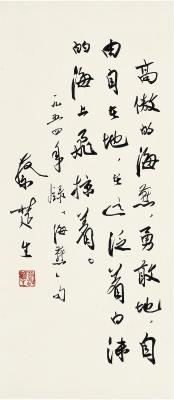 高傲的海燕，勇敢地，自
由自在地，在这泛着白沫
的海上飞掠着。
一九五四年录「海燕」句
蔡楚生